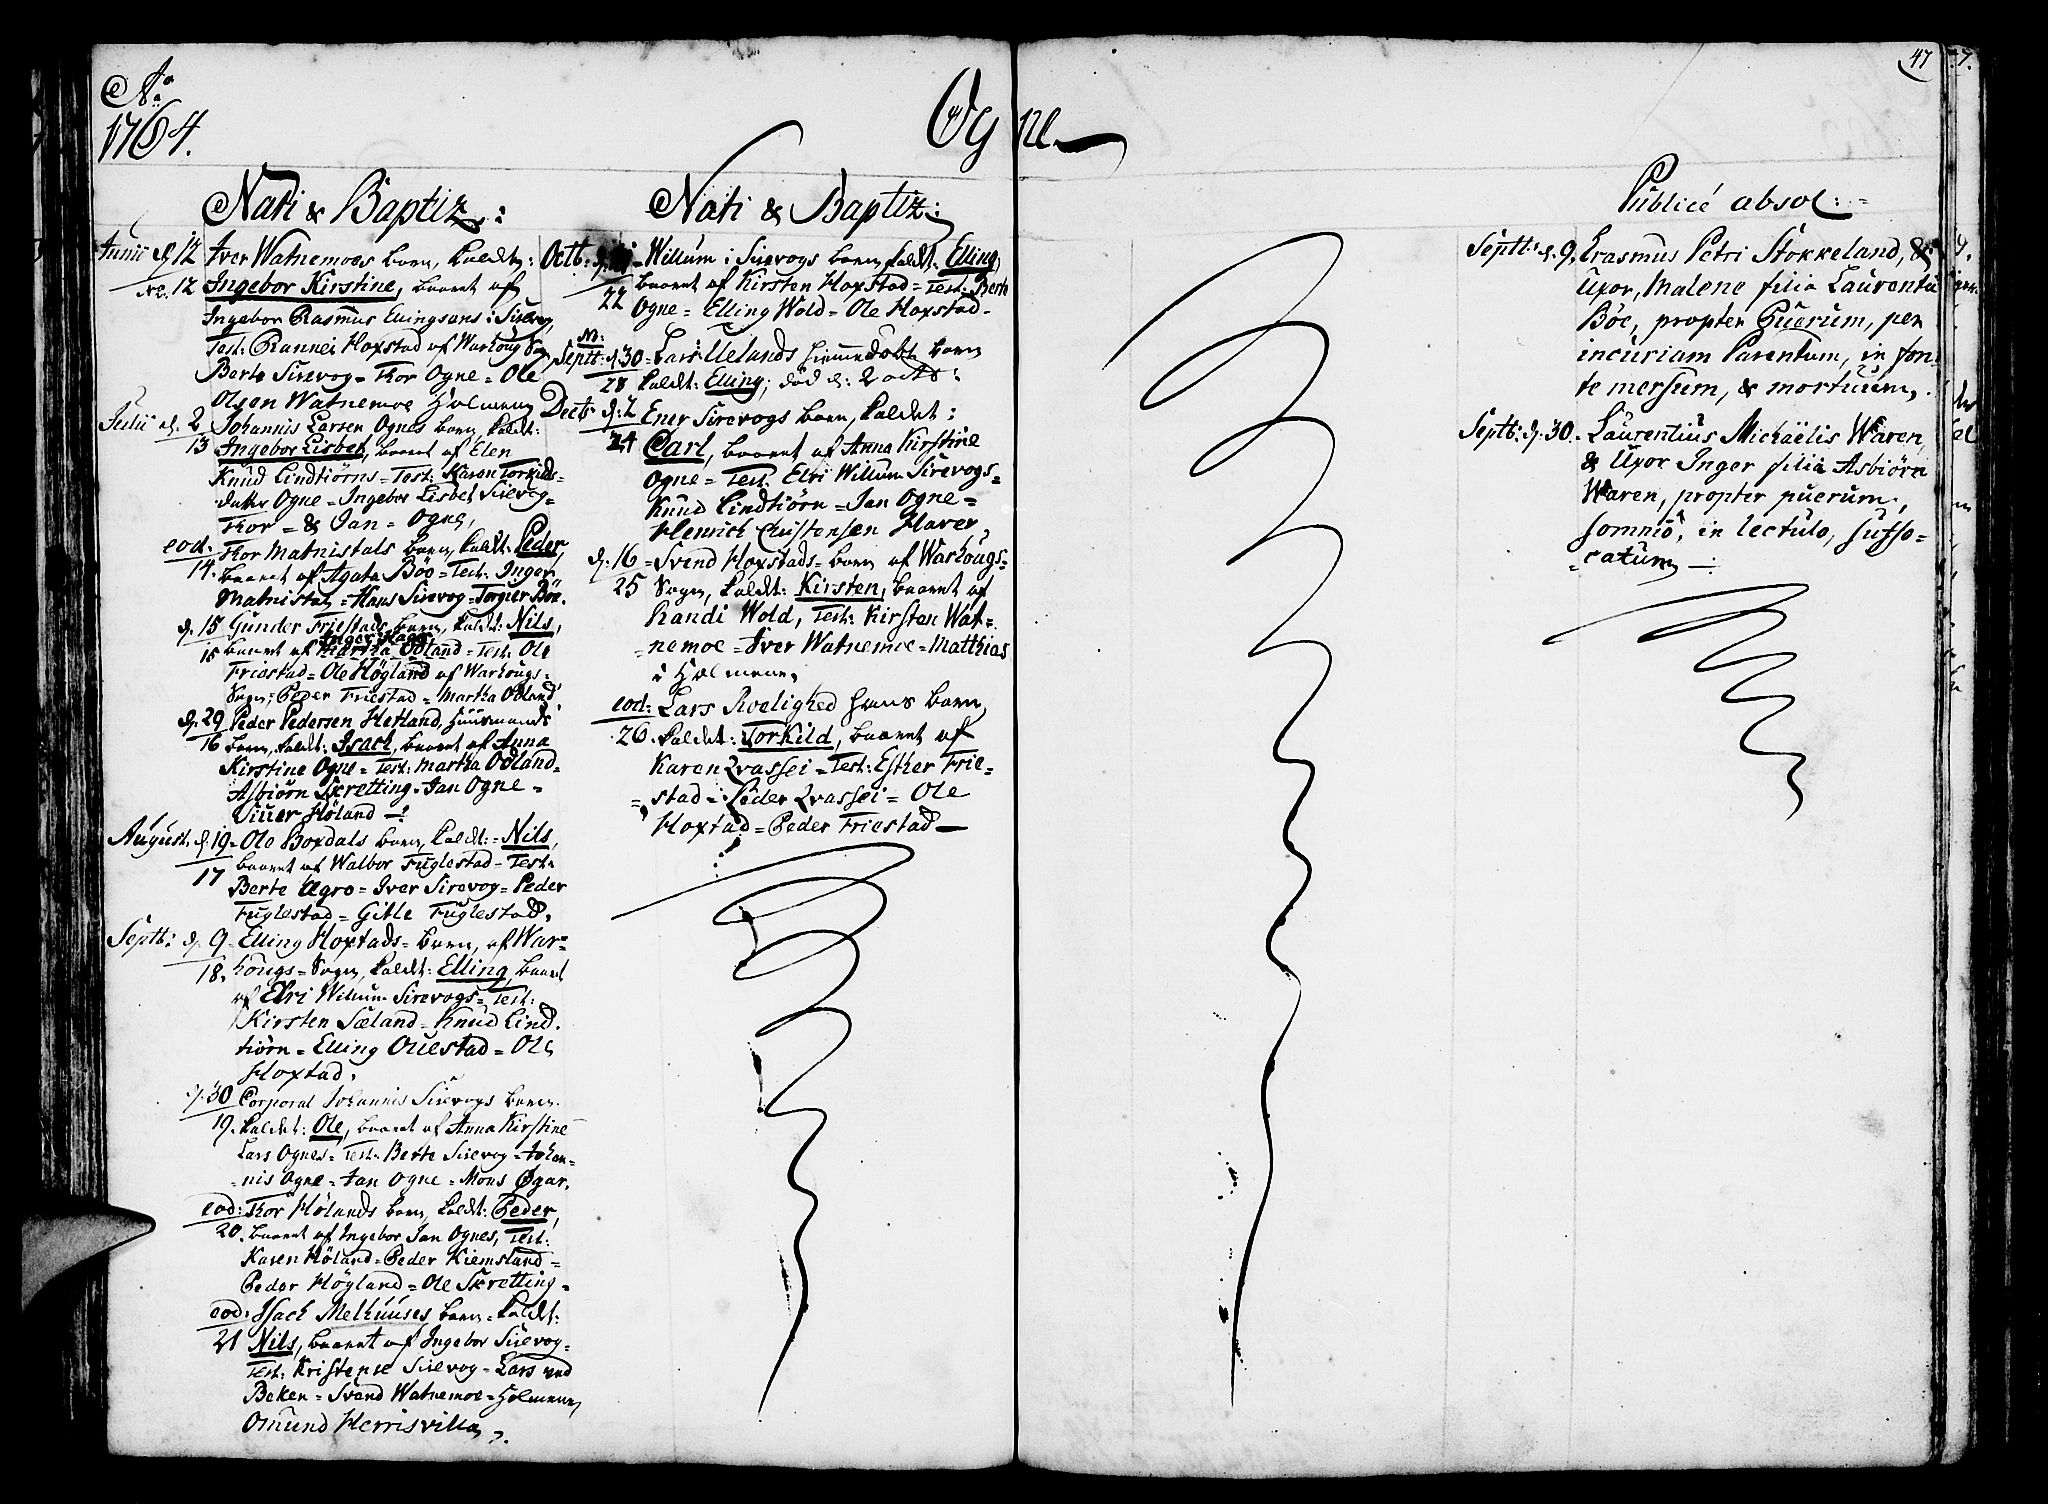 Aō
1764.
Ogne
47
Nati & Baptiz:
Junii d. 12 Iver Watnemoes barn, kaldt:
No. 12 Ingebor Kirstine, baaret af
Ingebor Rasmus Ellingsens i Sirevog
Test: Rannei Hoxstad af Warhoug Sogn
Berte Sirevog = Thor Ogne = Ole
Olsen Watnemoe Holmen
Julii d. 2 Johannis Larsen Ognes barn, kaldt:
13 Ingebor Lisbet, baaret af Elen
Knud Lindtiörns = Test: Karen Torkilds=
datter Ogne = Ingebor Lisbet Sirevog =
Thor = & Jan = Ogne,
eod: Thor Matnistals barn, kaldt: Peder,
14. baaret af Agata Böe = Test: Inger
Matnistal = Hans Sirevog = Torgier Böe.
d. 15 Gunder Friestads barn, kaldt: Nils,
Inger Haar
15 baaret af Martha Odland = Test: Ole
Friestad = Ole Högland af Warhougs =
Sogn; Peder Friestad = Martha Odland
d. 29 Peder Pedersen Hetland, Huusmands
16 barn, kaldt: Isach, baaret af Anna
Kirstine Ogne = Test: Martha Odland =
Asbiörn Skretting = Jan Ogne =
Siuer Höland
August. d. 19 = Ole Boxdals barn, kaldt: = Nils,
17 baaret af Walbor Fuglestad = Test:
Berte Agro = Iver Sirevog = Peder
Fuglestad = Gitle Fuglestad,
Septb: d. 9 = Elling Hoxtads = barn, af War=
18. hougs = Sogn, kaldt: Elling, baaret
af Elri Willum Sirevogs = Test:
Kirsten Sæland = Knud Lind
tiörn = Elling Ouestad = Ole
Hoxtad,
d. 30 Corporal Johannis Sirevogs barn
19. kaldet: Ole, baaret af Anna Kirstine
Lars Ognes = Test: Berte Sirevog = Johan=
=nis Ogne = Jan Ogne = Mons
eod: Thor Hölands barn, kaldt: Peder,
20. baaret af Ingebor Jan Ognes, Test:
Karen Höland = Peder Kiemsland =
Peder Högland = Ole Skretting =
eod: Isach Melhuuses barn = kaldt:
21 Nils, baaret af Ingebor Sirevog =
Test: Kristense Sirevog = Lars ved
Beken = Svend Watnemoe = Holmene
Omund Herrisvilla
Nati & Baptiz:
Octb: Willum i Sirevogs barn, kaldt: Elling,
22 baaret af Kirsten Hoxstad = Test: Berte
Ogne = Elling Wold = Ole Hoxstad.
Septb: d. 30 = Lars Uelands hiemmedöbt barn
23 kaldt: Elling; död d: 2 octb:
Decb d. 2 Ener Sirevogs barn, kaldet:
24 Carl, baaret af Anna Kirstine
Ogne = Test: Elri Willum Sirevogs =
Knud Lindtiörn = Jan Ogne =
Henrich Christensen Haver,
d. 16 = Svend Hoxstads = barn af Warhougs=
25 Sogn, kaldt: Kirsten, baaret af
Randi Wold, Test: Kirsten Wat=
=nemoe = Iver Watnemoe = Matthias
i Holmene,
eod: Lars Roelighed hans barn,
26. kaldt: Torkild, baaret af
Karen Qvassei = Test: Esther Frie=
=stad = Peder Qvassei = Ole
Hoxtad = Peder Friestad
Publicé absol:
Septb: d. 9. Erasmus Petri Stokkeland, &
Uxor, Malene filia Laurentii
Böe, propter Puerum, per
incuriam Parentum, in fon
te mersum, & mortuum.
Septb: d. 30. Laurentius Michaëlis Waren,
& Uxor Inger filia Asbiörn
Waren, propter puerum,
somnô, in lectulo, suffo=
=catum